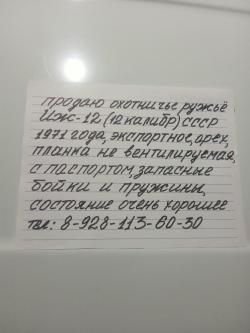 продаю охотничье ружьё
Иж-12 (12 калибр) СССР
1971 года, экспортное, орех,
планка не вентилируемая,
с паспортом, запасные
бойки и пружины,
состояние очень хорошее
тел: 8-928-113-60-30